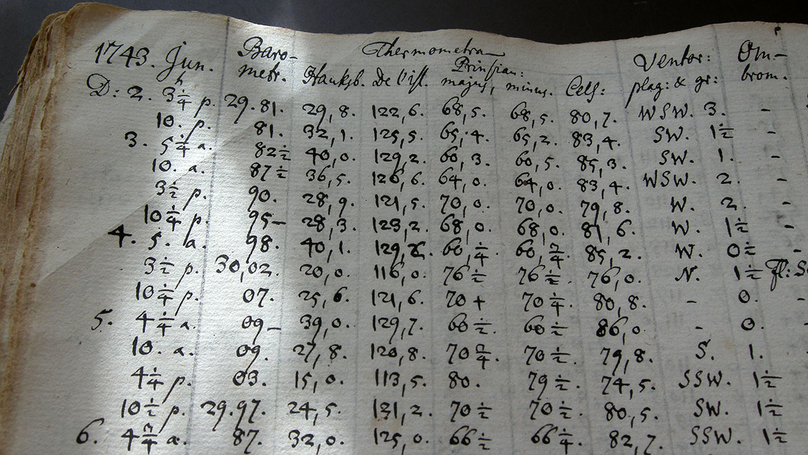 1743. Jun. Baro- Thermometra Ventor: Om-
h. metr. Hauksb. De l'Isl. Prinsian: majus, minus. Cels: plag: & gr: brom.
D: 2. 3¼ p. 29.81. 29,8. 122,6. 68,5. 68,5. 80,7. WSW. 3. -
10. p. 81. 32,1. 125,5. 65,4. 65,2. 83,4. SW. 1½ -
3. 5¼ a. 82½ 40,0. 129,2. 60,3. 60,5. 85,3. SW. 1. -
10. a. 87½ 36,5. 126,6. 64,0. 64,0. 83,4. WSW. 2. -
3½ p. 90. 28,9. 121,5. 70,0. 70,0. W. 2. -
10¼ p. 95- 28,3. 123,2. 68,0. 68,0. 81,6. W. 1½ -
4. 5. a. 98. 40,1. 129, 60¼ 60 85,2. W. 0½ -
3½ p. 30,02. 20,0. 116,0. 76½ 76½ 76,0. N. 1½
10¼ p. 07. 25,6. 121,6. 70+ 70¼ 80,8. - 0. -
5. 4¼ a. 09- 39,0. 129,7. 60½ 60½ 86,0. - 0. -
10. a. 09. 27,8. 120,8. 70 70½ 79,8. S. 1. -
4¼ p. 03. 15,0. 113,5. 80. 79½ 74,5. SSW. 1½ -
10½ p. 29.97. 24,5. 121,2. 70½ 70½ 80,5. SW. 1½ -
6. 4 a. 87. 32,0. 125,0. 66½ 66¼ 82,7. SSW. 1½ -